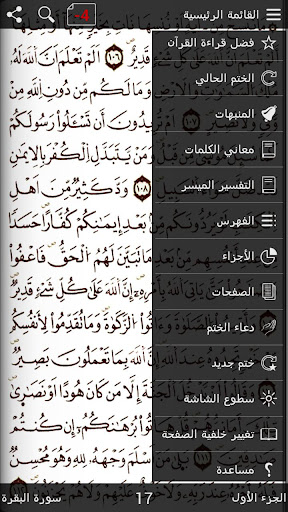 القائمة الرئيسية
-4
فضل قراءة القرآن
الختم الحالي
المنبهات
معاني الكلمات
التفسير الميسر
الفهرس
الأجزاء
الصفحات
دعاء الختم
ختم جديد
سطوع الشاشة
تغيير خلفية الصفحة
مساعدة
قَدِيرٌ ١٠٦ أَلَمْ تَعْلَمْ أَنَّ ٱللَّهَ لَهُۥ
مِّن دُونِ ٱللَّهِ مِن
أَمْ تُرِيدُونَ أَن تَسْـَٔلُوا۟ رَسُولَكُمْ
وَمَن يَتَبَدَّلِ ٱلْكُفْرَ بِٱلْإِيمَٰنِ
١٠٨ وَدَّ كَثِيرٌ مِّنْ أَهْلِ
بَعْدِ إِيمَٰنِكُمْ كُفَّارًا حَسَدًا
مَا تَبَيَّنَ لَهُمُ ٱلْحَقُّ فَٱعْفُوا۟
إِنَّ ٱللَّهَ عَلَىٰ كُلِّ شَىْءٍ قَدِيرٌ
ٱلزَّكَوٰةَ وَمَا تُقَدِّمُوا۟ لِأَنفُسِكُم
ٱللَّهَ بِمَا تَعْمَلُونَ بَصِيرٌ
إِلَّا مَن كَانَ هُودًا أَوْ نَصَٰرَىٰ
هَاتُوا۟ بُرْهَٰنَكُمْ
وَجْهَهُۥ لِلَّهِ وَهُوَ مُحْسِنٌ
الجزء الأول
17
سورة البقرة